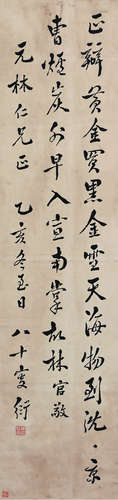 正辦黃金買黑金雪天海物到沈〻京
曹爐炭早入宣南掌故林官敬
元林仁兄正 乙亥冬至日 八十叟衍